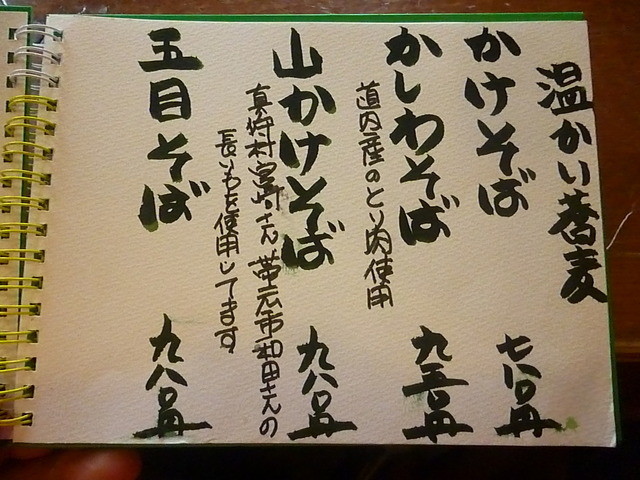 温かい蕎麦
かけそば 七八〇円
かしわそば 九五〇円
道内産のとり肉使用
山かけそば 九八〇円
真狩村宮崎さん 帯広市和田さんの
長いもを使用してます
五目そば 九八〇円